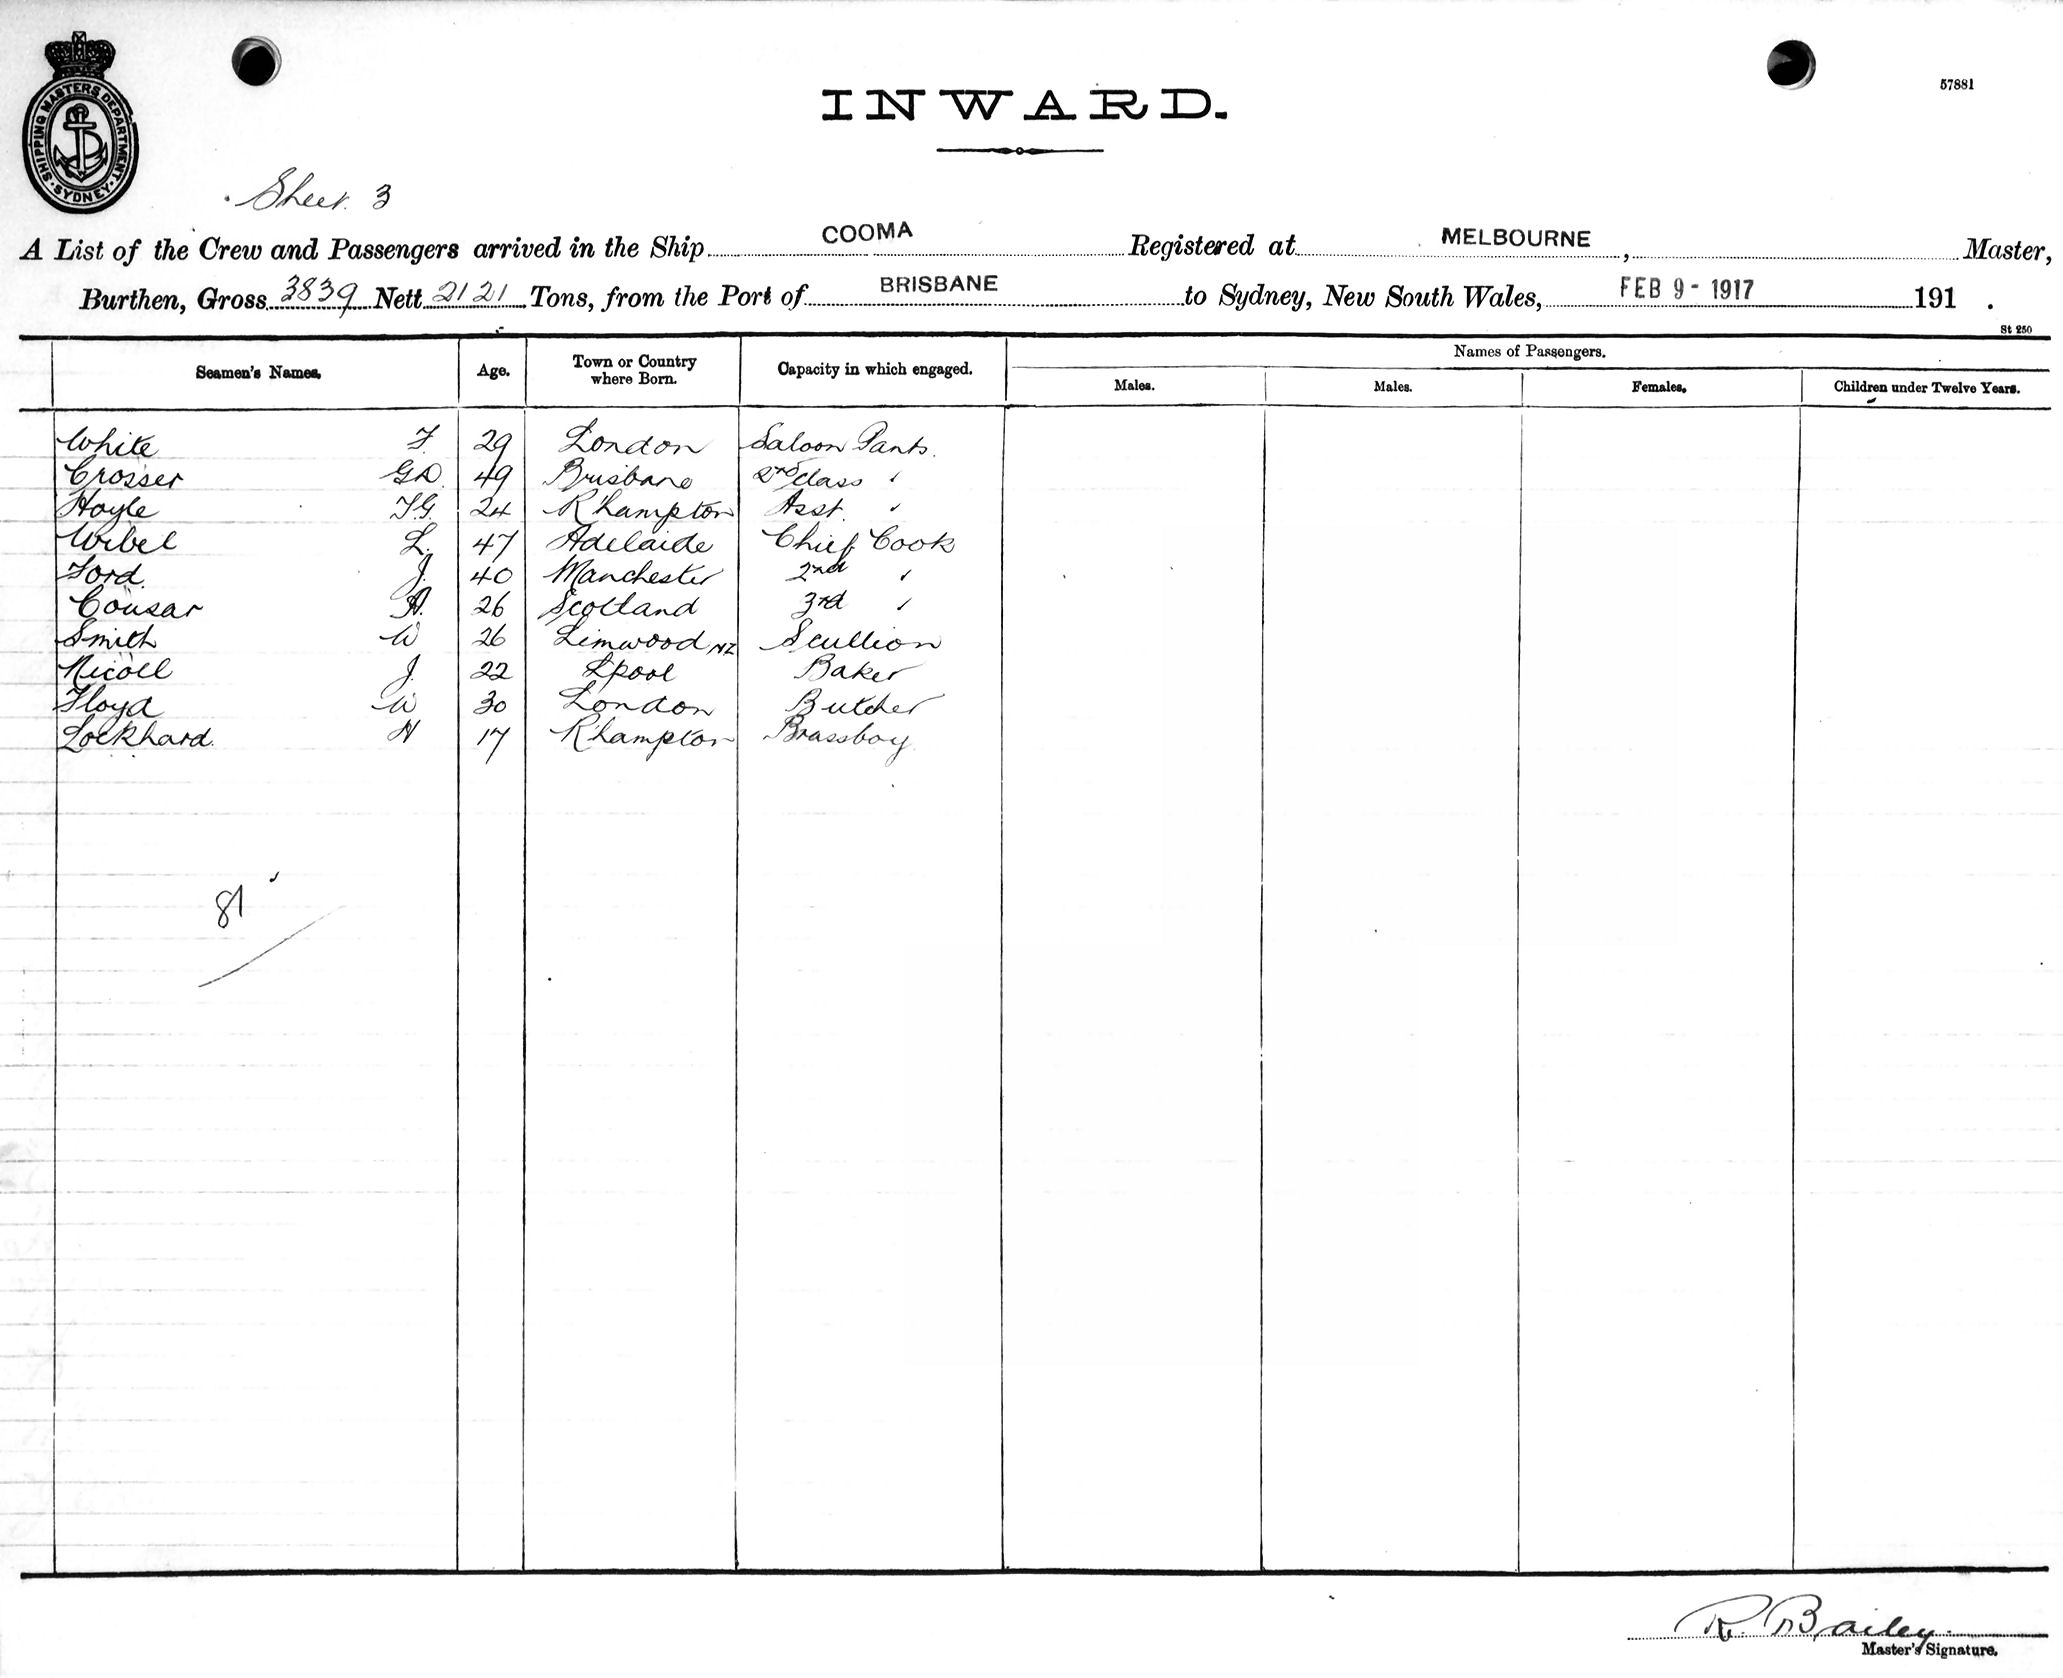 SHIPPING MASTERS DEPARTMENT · SYDNEY ·
57881
INWARD.
Sheet. 3
A List of the Crew and Passengers arrived in the Ship COOMA Registered at MELBOURNE, Master,
Burthen, Gross 3839 Nett 2121 Tons, from the Port of BRISBANE to Sydney, New South Wales, FEB 9 - 1917 191 .
St 250
Seamen's Names. Age. Town or Country where Born. Capacity in which engaged. Names of Passengers.
Males. Males. Females. Children under Twelve Years.
White F. 29 London Saloon Pants.
Crosser G.D. 49 Brisbane 2nd Class "
Hoyle T.G. 24 R'hampton Asst. "
Wibel L. 47 Adelaide Chief Cook
Ford. J. 40 Manchester 2nd "
Cousar A. 26 Scotland 3rd "
Smith W 26 Limwood NZ Scullion
Nicoll J. 22 Lpool Baker
Floyd W 30 London Butcher
Lockhard. H 17 R'hampton Brassboy
81
R. Bailey.
Master's Signature.